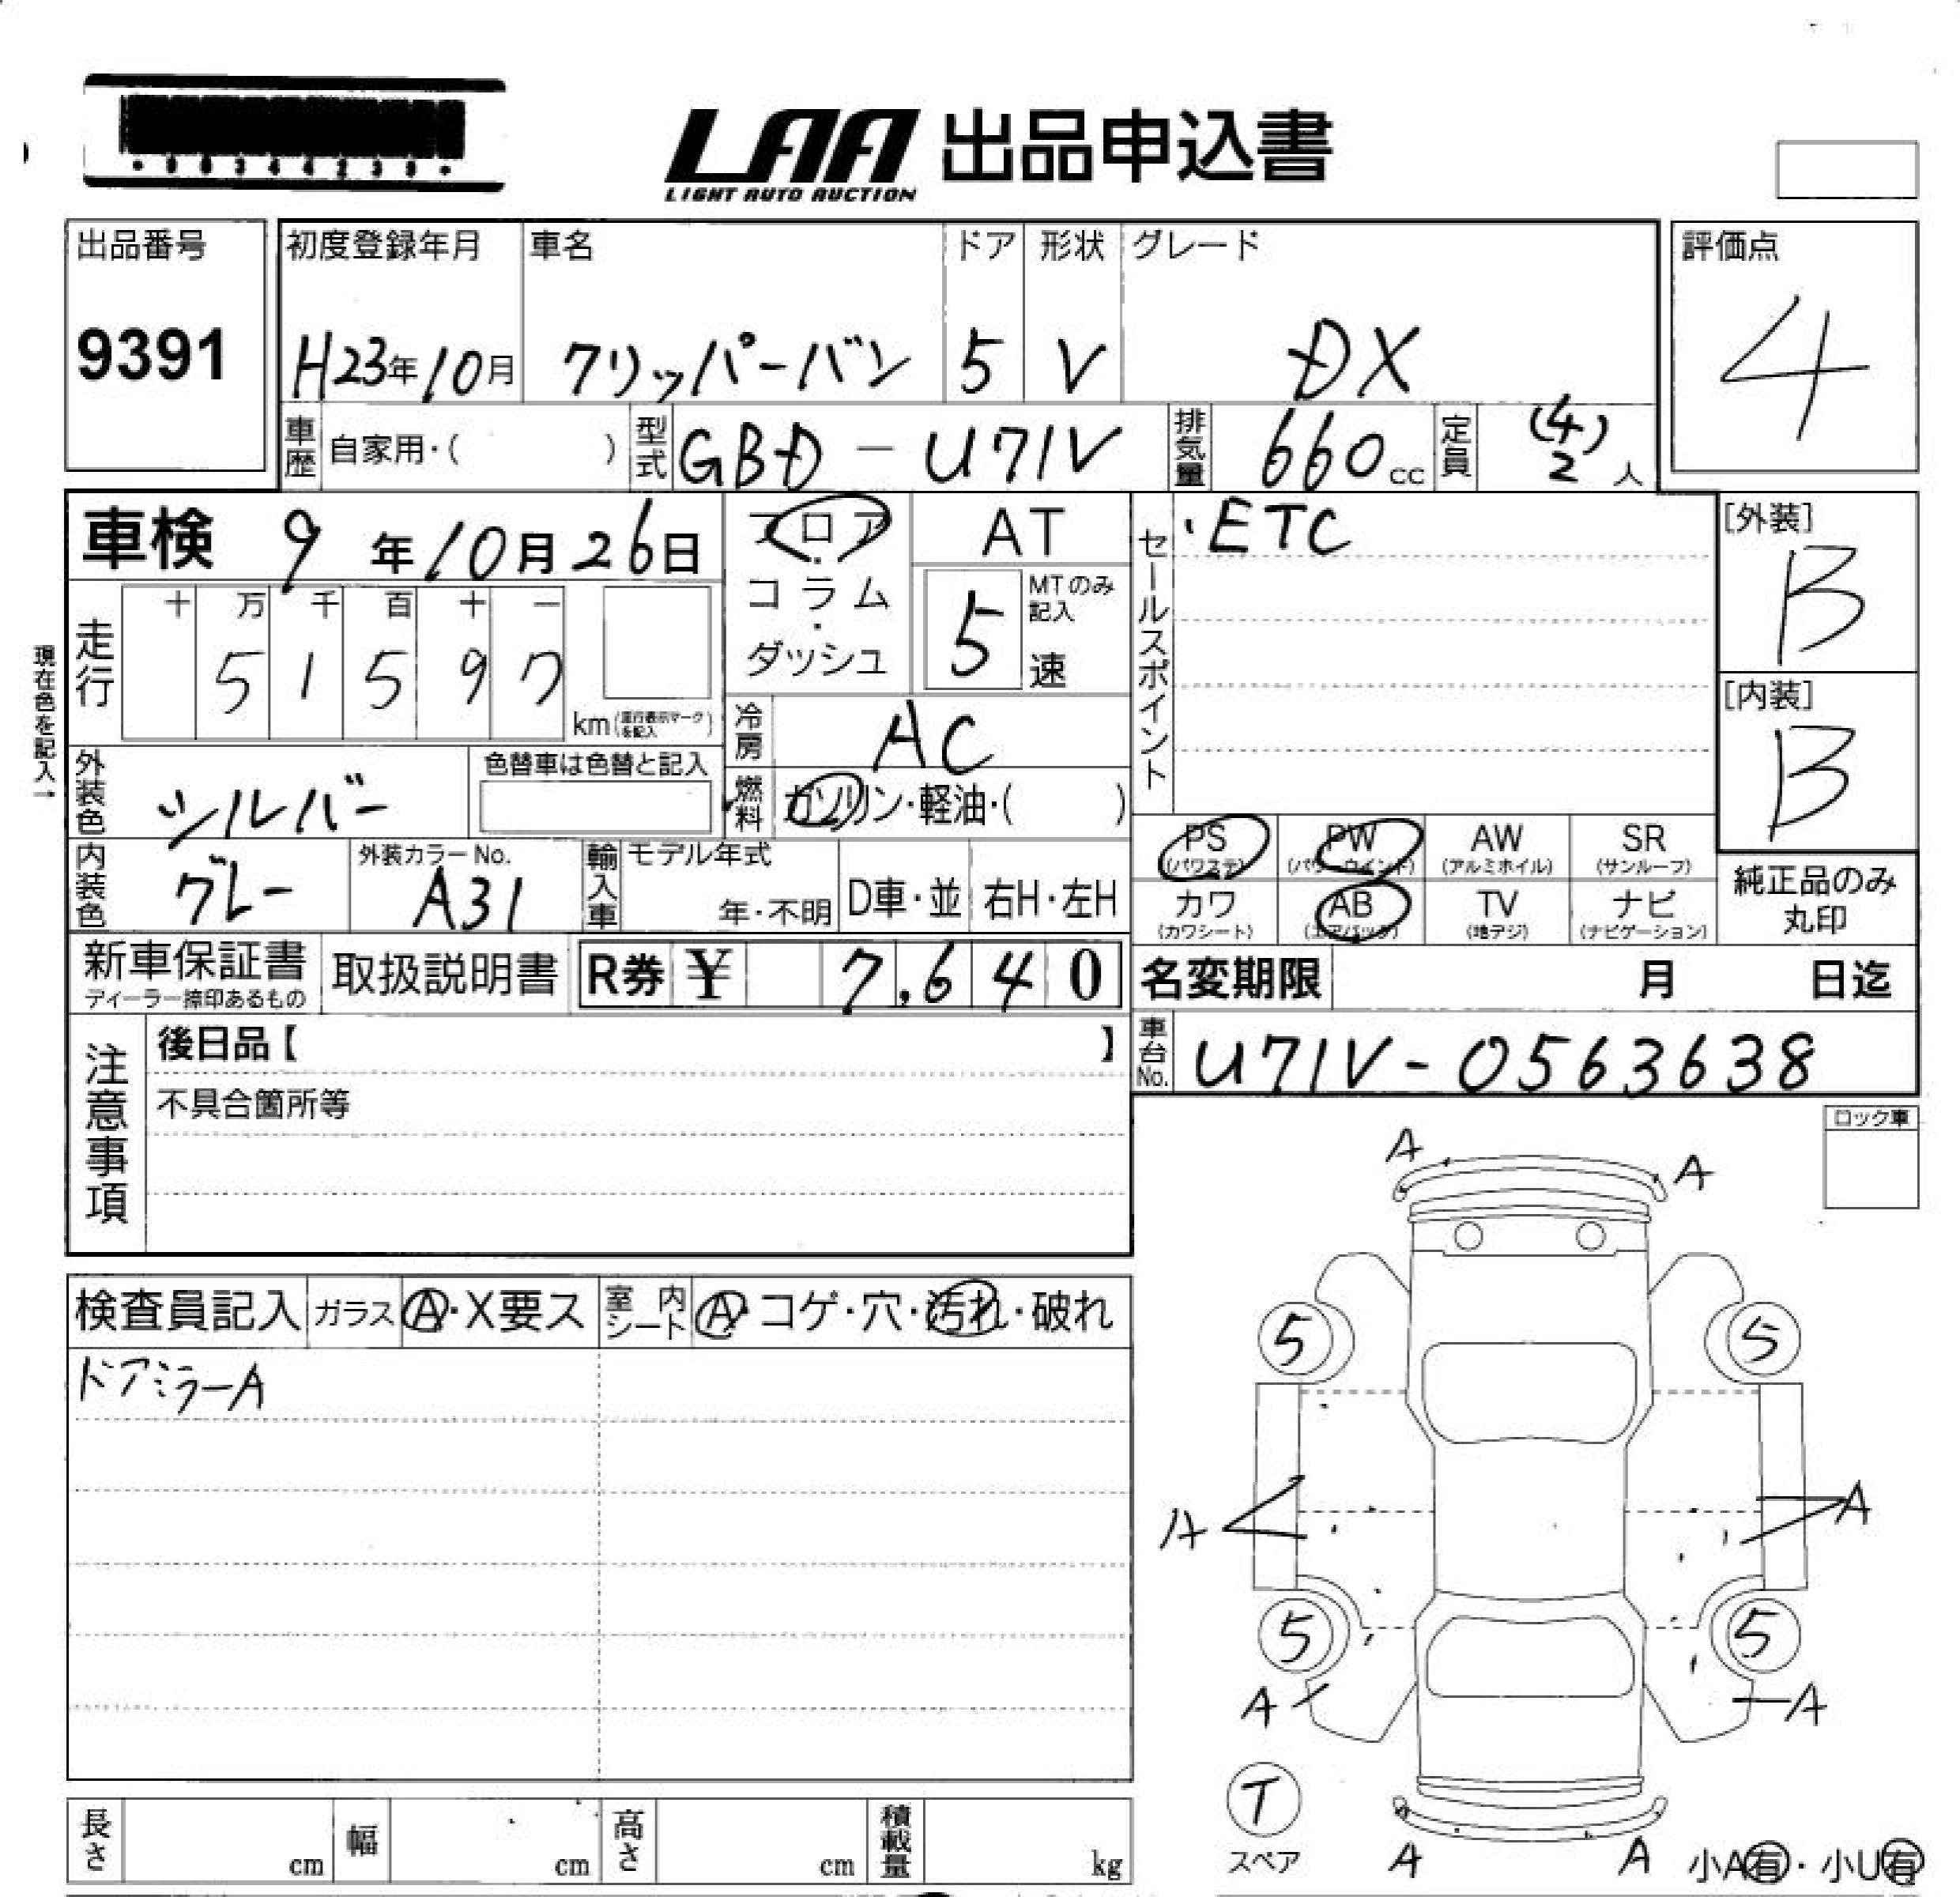 LAA 出品申込書
LIGHT AUTO AUCTION
出品番号 初度登録年月 車名 ドア 形状 グレード 評価点
9391 H23年10月 クリッパーバン 5 V DX 4
車歴 自家用・( ) 型式 GBD-U71V 排気量 660cc 定員 (4) 2 人
車検 9年10月26日 フロア・コラム・ダッシュ AT
MTのみ記入 5速
セールスポイント ・ETC
[外装] B
走行 十 万 千 百 十 一
5 1 5 9 7 km
[内装] B
現在色を記入→
冷房 AC
外装色 シルバー 色替車は色替と記入
燃料 ガソリン・軽油・( )
PS (パワステ) PW (パワーウインド) AW (アルミホイル) SR (サンルーフ)
内装色 グレー 外装カラーNo. A31 輸入車 モデル年式 年・不明 D車・並 右H・左H
カワ (カワシート) AB (エアバック) TV (地デジ) ナビ (ナビゲーション)
純正品のみ丸印
新車保証書 取扱説明書 R券 ¥ 7,640
名変期限 月 日迄
車台No. U71V-0563638
注意事項 後日品【 】
不具合箇所等
ロック車
検査員記入 ガラス A・X要ス 室内シート A・コゲ・穴・汚れ・破れ
ドアミラーA
A A
5 5
A A
5 5
A A
T
スペア A A 小A有・小U有
長さ cm 幅 cm 高さ cm 積載量 kg